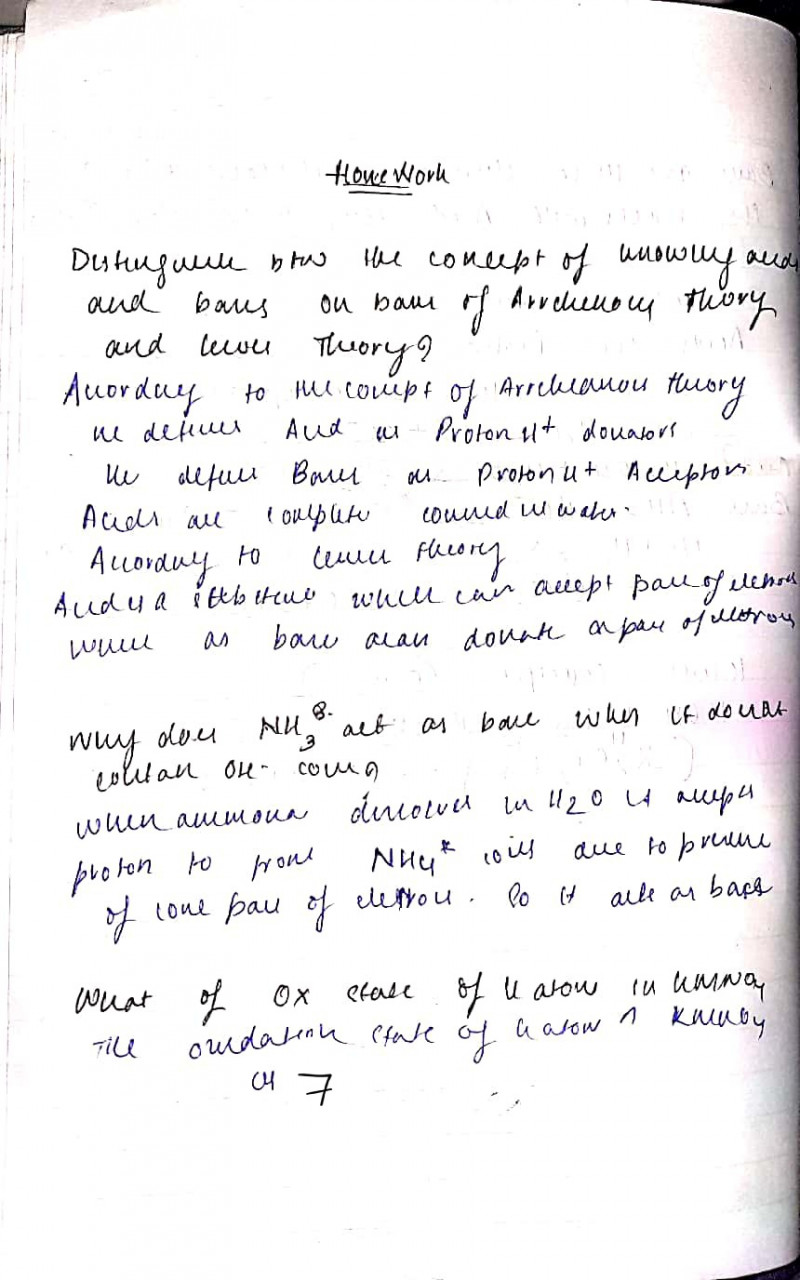 Home Work
Distinguish btw the concept of knowing acids
and bases on base of Arrhenious Theory
and lewis Theory?
According to the concept of Arrhenious theory
he defines Acid as Proton H+ donators
He define Bases as Proton H+ Acceptors
Acids are complete in water.
According to lewis theory
Acid is a substance which can accept pair of electrons
while as base donate a pair of electrons
Why does NH3 act as base when it donot
contain OH-
When ammonia dissolves in H2O it accepts
proton to NH4+ ions due to presence
of lone pair of electron. So it acts as base
What of OX state of K atom in KMNO4
The oxidation state of K atom KMNO4
is 7